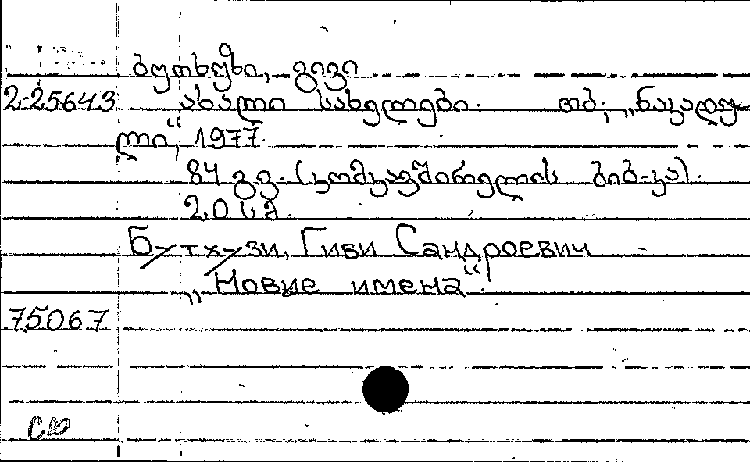 ბუთხუზი, გივი
2-25643 ახალი სახელები. თბ., „ნაკადუ-
ლი“, 1977.
84 გვ. (კომკავშირელის ბიბ-კა).
20 სმ.
Бутхузи, Гиви Сандроевич
„Новые имена“.
75067